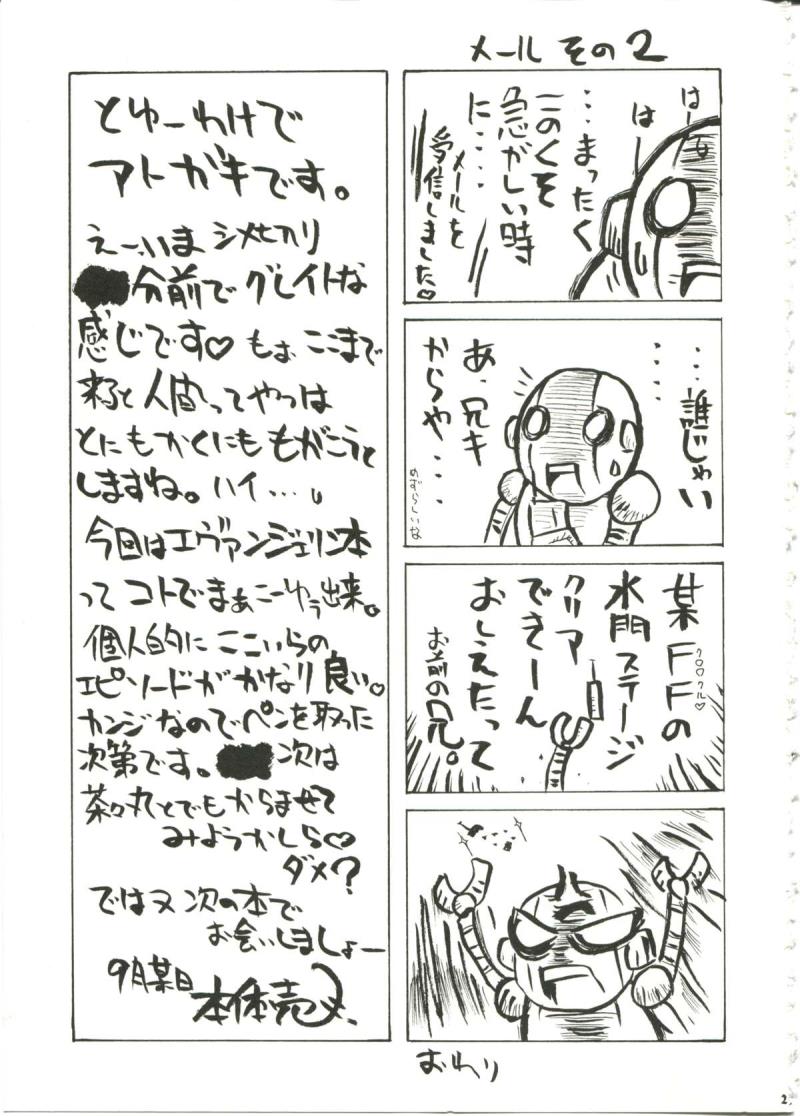 メール その2
はー
はー
・・・まったく
このくそ
急がしい時
に・・・・
メールを
受信しました♡
・・・・
・・・誰じゃい
あ、兄キ
からや・・・
めずらしいな
某FFの
水門ステージ
クリア
できーん
おしえたって
お前の兄。
おわり
とゆーわけで
アトガキです。
えー、いま シメキリ
分前で グレイトな
感じです♡ もぉ ここまで
来ると人間ってやつは
とにもかくにも もがこうと
しますね。ハイ…。
今回はエヴァンジェリン本
って コトで まぁ こーゆう出来。
個人的に ここいらの
エピソードが かなり 良い♡
カンジなので ペンを取った
次第です。 次は
茶々丸とでもからませて
みようかしら♡
ダメ?
ではヌ 次の本で
お会いしましょー
9月某日
本体売
2